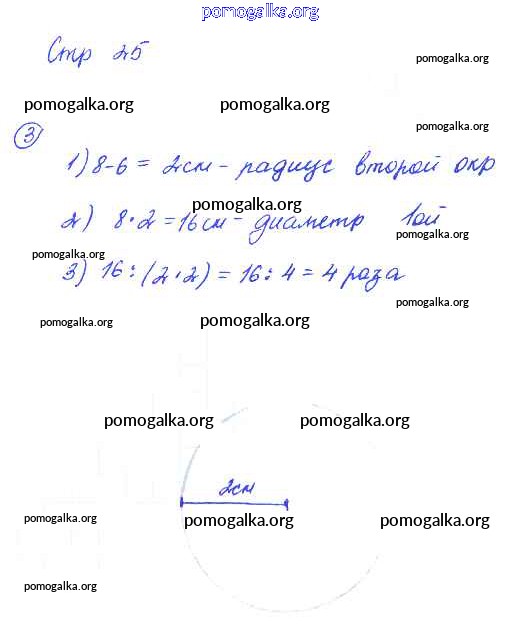 pomogalka.org
Стр 25
pomogalka.org
pomogalka.org pomogalka.org
pomogalka.org
3
1) 8-6 = 2см - радиус второй окр
pomogalka.org
2) 8·2 = 16см - диаметр 1ой
pomogalka.org
pomogalka.org
3) 16:(2·2) = 16:4 = 4 раза
pomogalka.org
pomogalka.org pomogalka.org
pomogalka.org pomogalka.org
2см
pomogalka.org pomogalka.org pomogalka.org
pomogalka.org